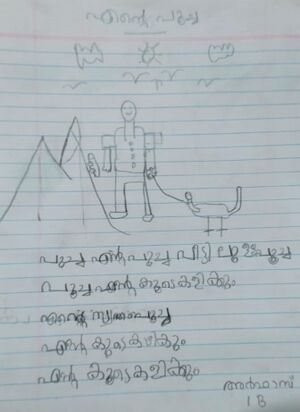 എന്റെ പൂച്ച
പൂച്ച എന്റെ പൂച്ച വീട്ടിലുള്ള പൂച്ച
പൂച്ച എന്റെ കൂടെ കളിക്കും
എന്റെ സ്വന്തം പൂച്ച
എന്റെ കൂടെ കഴിക്കും
എന്റെ കൂടെ കളിക്കും
അർഫാസ്
1 B